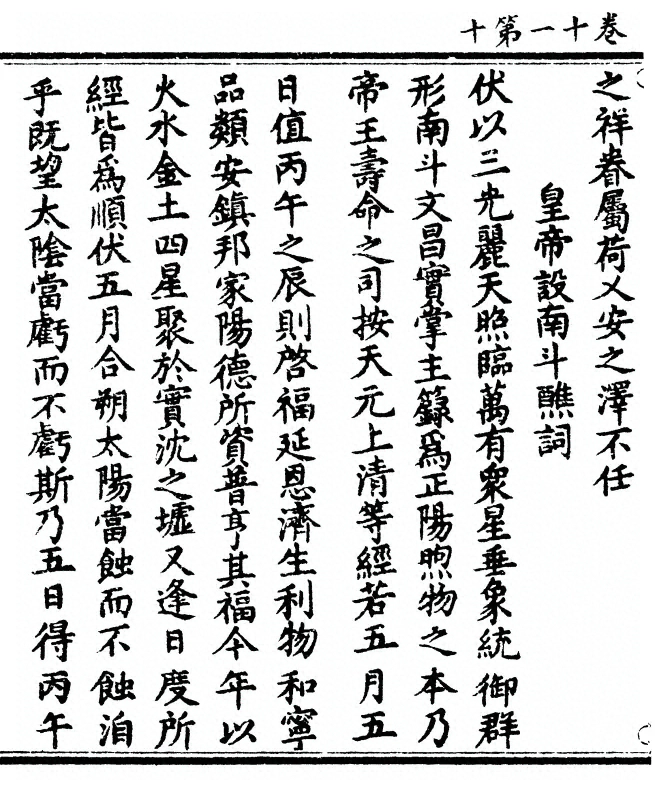 卷十一第十
之祥眷屬荷乂安之澤不任
皇帝設南斗醮詞
伏以三光麗天照臨萬有衆星垂象統御群
形南斗文昌實掌主籙爲正陽煦物之本乃
帝王壽命之司按天元上清等經若五月五
日值丙午之辰則啓福延恩濟生利物和寧
品類安鎮邦家陽德所資普亨其福今年以
火水金土四星聚於實沈之墟又逢日度所
經皆爲順伏五月合朔太陽當蝕而不蝕洎
乎旣望太陰當虧而不虧斯乃五日得丙午